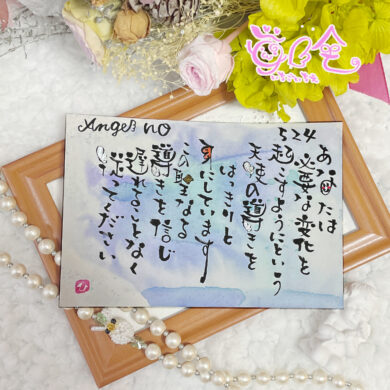 Angel no
524
あなたは
必要な変化を
起こすようにという
天使の導きを
はっきりと
耳にしています
この聖なる
導きを信じ
遅れることなく
従ってください